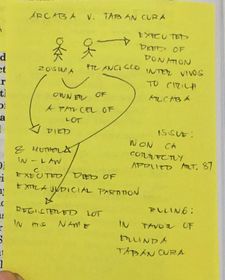 ARCABA V. TABANCURA
EXECUTED
DEED OF
DONATION
INTER VIVOS
TO CIRILA
ARCABA
ZOSIMA FRANCISCO
OWNER OF
A PARCEL OF
LOT
DIED
& MOTHER
IN-LAW
EXECUTED DEED OF
EXTRAJUDICIAL PARTITION
REGISTERED LOT
IN HIS NAME
ISSUE:
WON CA
CORRECTLY
APPLIED ART. 87
RULING:
IN FAVOR OF
ERLINDA
TABANCURA